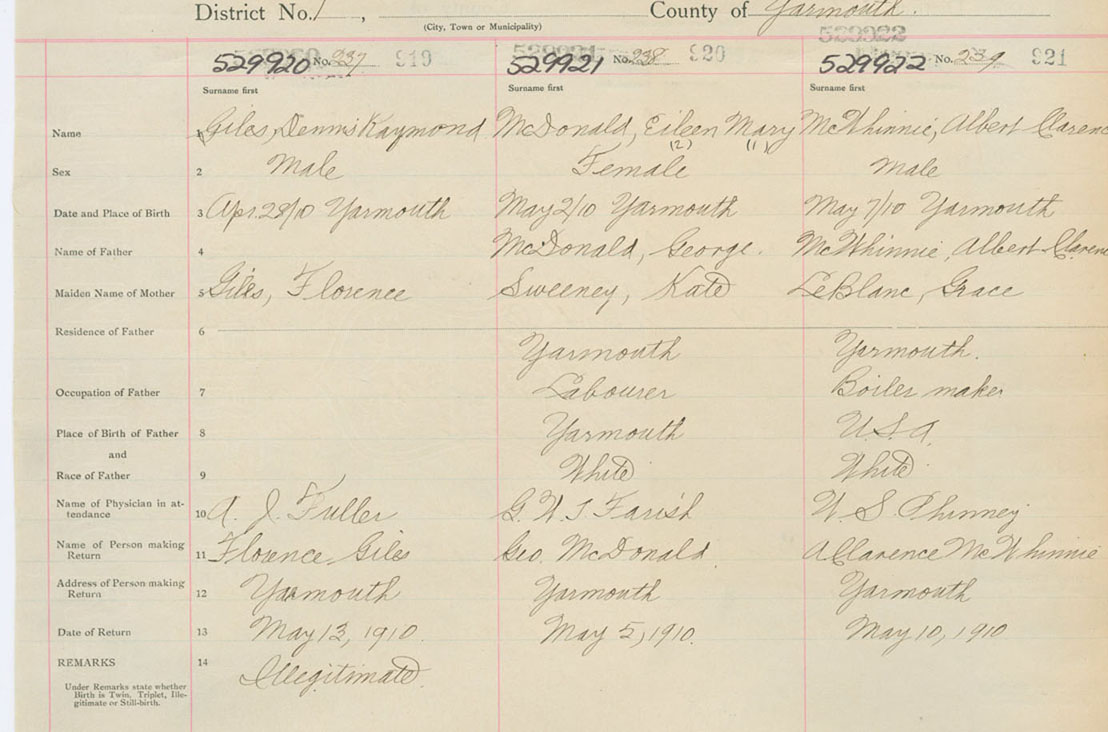 District No. 1 , County of Yarmouth.
(City, Town or Municipality)
529922
529920 No. 237 919 529921 No. 238 920 529922 No. 239 921
Surname first Surname first Surname first
Name 1 Giles, Dennis Raymond McDonald, Eileen Mary McWhinnie, Albert Clarenc
(2) (1)
Sex 2 Male Female Male
Date and Place of Birth 3 Apr. 28/10 Yarmouth May 2/10 Yarmouth May 7/10 Yarmouth
Name of Father 4 McDonald, George. McWhinnie, Albert Clarenc
Maiden Name of Mother 5 Giles, Florence Sweeney, Kate LeBlanc, Grace
Residence of Father 6 Yarmouth Yarmouth.
Occupation of Father 7 Labourer Boiler maker
Place of Birth of Father 8 Yarmouth U.S.A.
and
Race of Father 9 White White
Name of Physician in at-
tendance 10 A. J. Fuller G. W. T Farish W. S Phinney
Name of Person making
Return 11 Florence Giles Geo. McDonald. A Clarence McWhinnie
Address of Person making
Return 12 Yarmouth Yarmouth Yarmouth
Date of Return 13 May 13, 1910. May 5, 1910. May 10, 1910
REMARKS 14 Illegitimate.
Under Remarks state whether
Birth is Twin, Triplet, Ille-
gitimate or Still-birth.